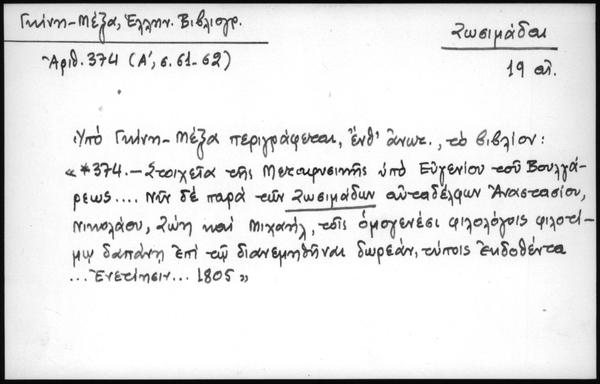 Γκίνη-Μέξα, Ἑλλην. Βιβλιογρ.
Ζωσιμάδαι
Ἀριθ. 374 (Α', σ. 61-62)
19 αἰ.
Ὑπὸ Γκίνη-Μέξα περιγράφεται, ἔνθ' ἀνωτ., τὸ βιβλίον:
« *374.- Στοιχεῖα τῆς Μεταφυσικῆς ὑπὸ Εὐγενίου τοῦ Βουλγά-
ρεως.... Νῦν δὲ παρὰ τῶν Ζωσιμάδων αὐταδέλφων Ἀναστασίου,
Νικολάου, Ζώη καὶ Μιχαήλ, τοῖς ὁμογενέσι φιλολόγοις φιλοτί-
μῳ δαπάνῃ ἐπὶ τῷ διανεμηθῆναι δωρεάν, τύποις ἐκδοθέντα
... Ἐνετίησιν... 1805 »